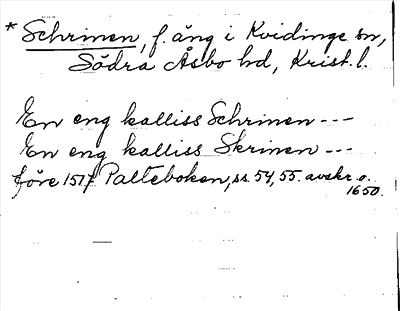 * Schrinen, f. äng i Kvidinge sn,
Södra Åsbo hd, Krist. l.
En eng kalliss Schrinen ---
En eng kalliss Skrinen ---
före 1517 Palteboken, ss. 54, 55. avskr. o.
1650.